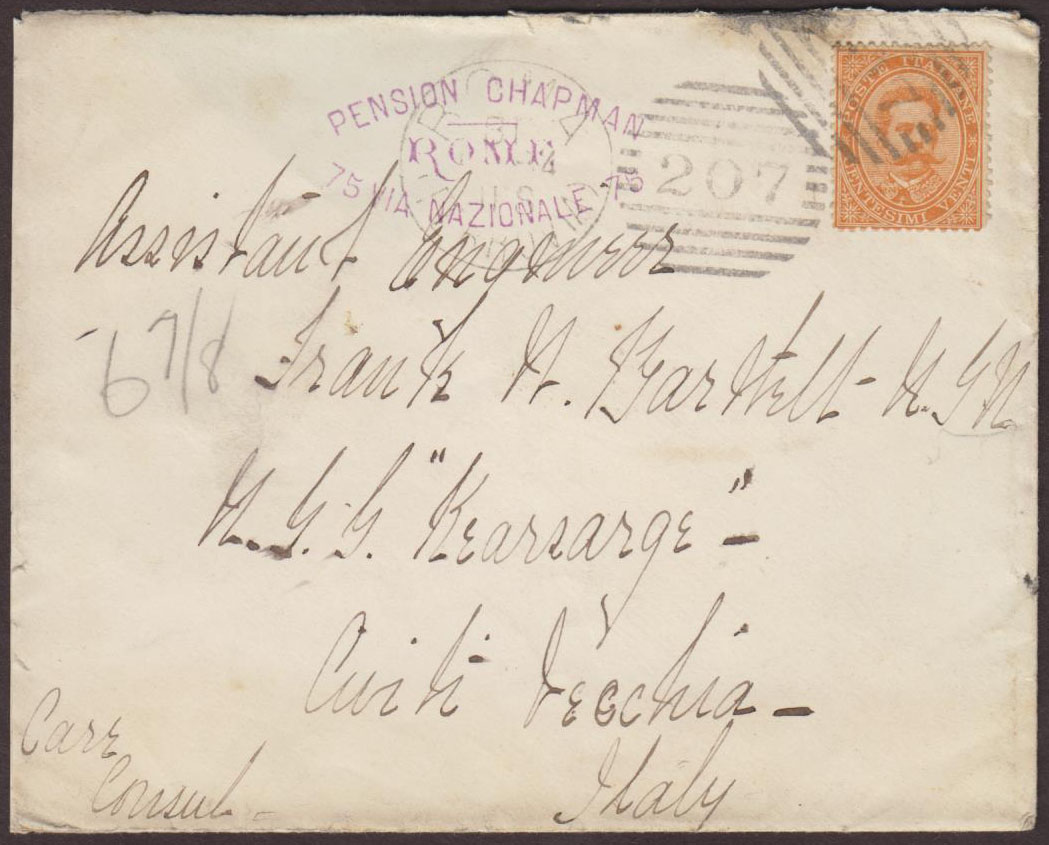 POSTE ITALIANE
CENTESIMI VENTI
PENSION CHAPMAN
ROME
75 VIA NAZIONALE 75
207
Assistant Engineer
6 7/8
Frank W. Bartlett U.S.N
U.S.S. "Kearsarge" -
Civiti Vecchia -
Italy
Care
Consul -